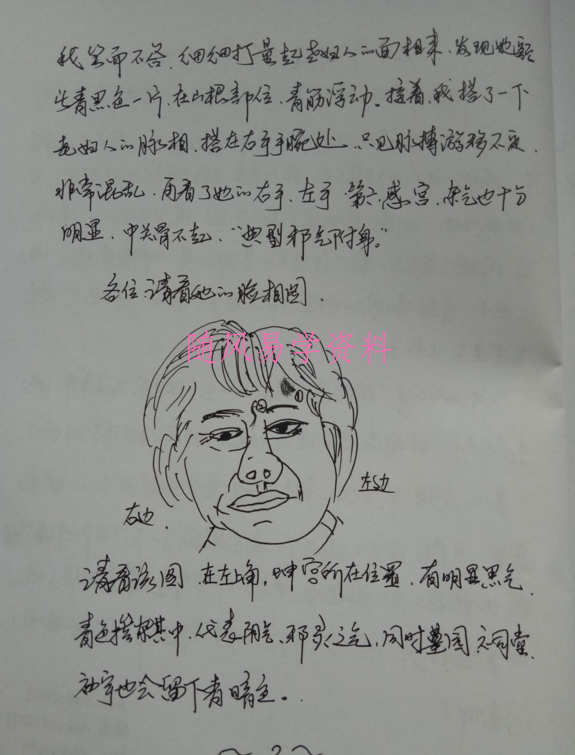 我笑而不答.仔细打量起老妇人的面相来.发现她额
些青黑色一片.在山根部位.青筋浮动.接着.我搭了一下
老妇人的脉相.搭在右手手腕处.只见脉搏游移不定.
非常混乱.再看了她的右手.左手 第六感宫.杂气也十分
明显.中关骨不起."典型邪气附身."
各位请看她的脸相图.
随风易学资料
左边
右边.
请看该图 在左上角,坤宫所在位置.有明显黑气.
青色接其中.代表阴气.邪灵之气,同时墓园 祠堂.
神字也会留下青暗主。
2